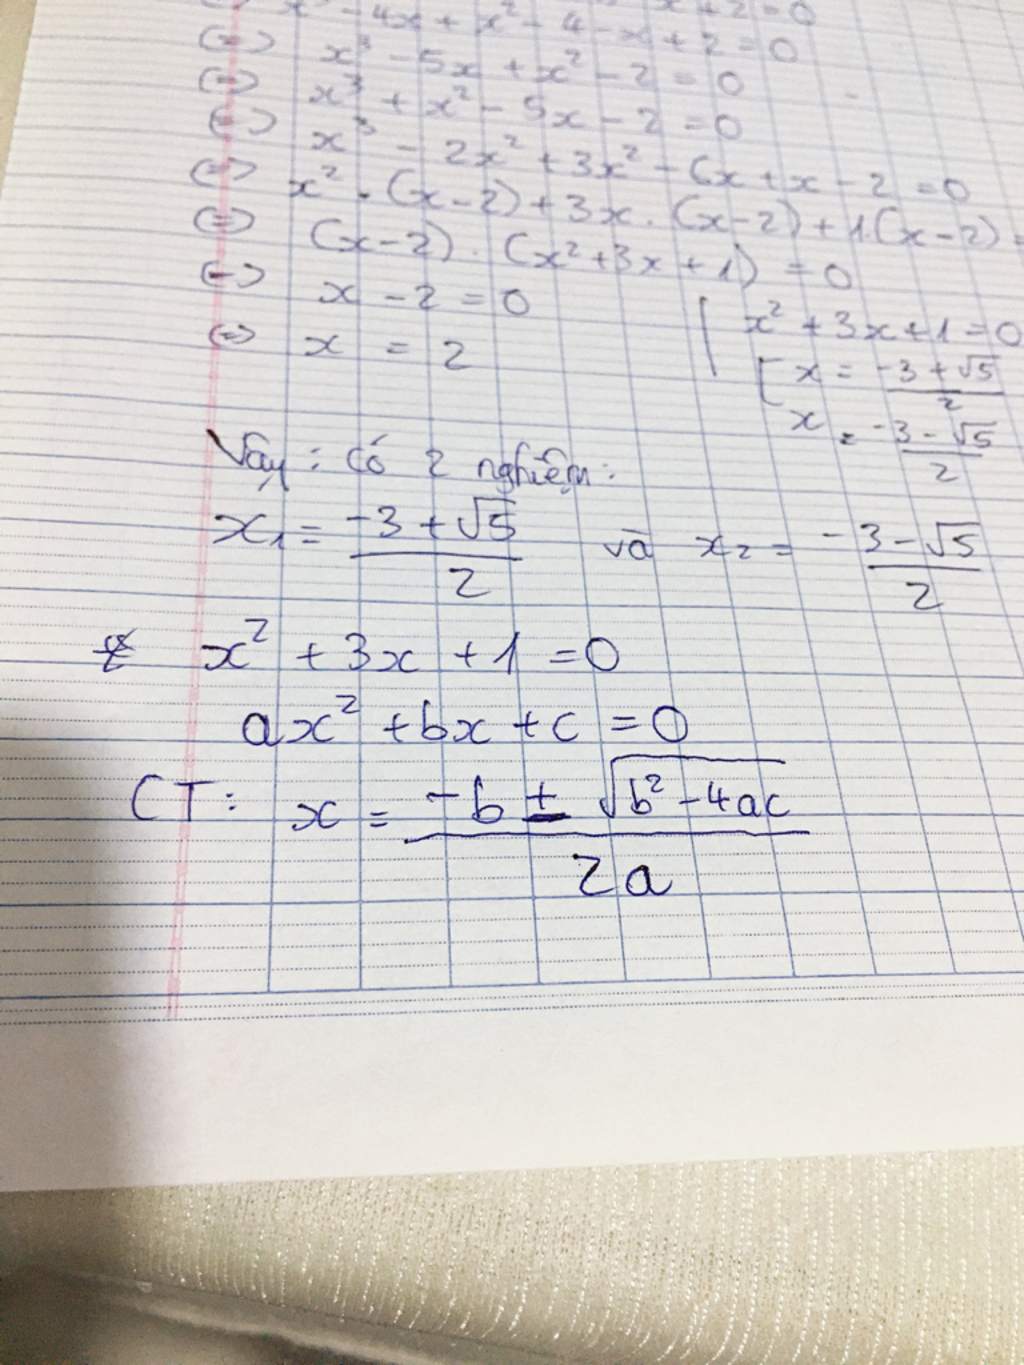 x³ - 4x + x² - 4 - x + 2 = 0
(=) x³ - 5x + x² - 2 = 0
(=) x³ + x² - 5x - 2 = 0
(=) x³ - 2x² + 3x² - 6x + x - 2 = 0
(=) x² . (x-2) + 3x . (x-2) + 1.(x-2) =
(=) (x-2) . (x² + 3x + 1) = 0
(=) x - 2 = 0 | x² + 3x + 1 = 0
(=) x = 2 [ x = (-3 + √5)/2
x = (-3 - √5)/2
Vậy : có 2 nghiệm :
x₁ = (-3 + √5)/2 và x₂ = (-3 - √5)/2
x² + 3x + 1 = 0
ax² + bx + c = 0
CT : x = (-b ± √(b² - 4ac))/2a